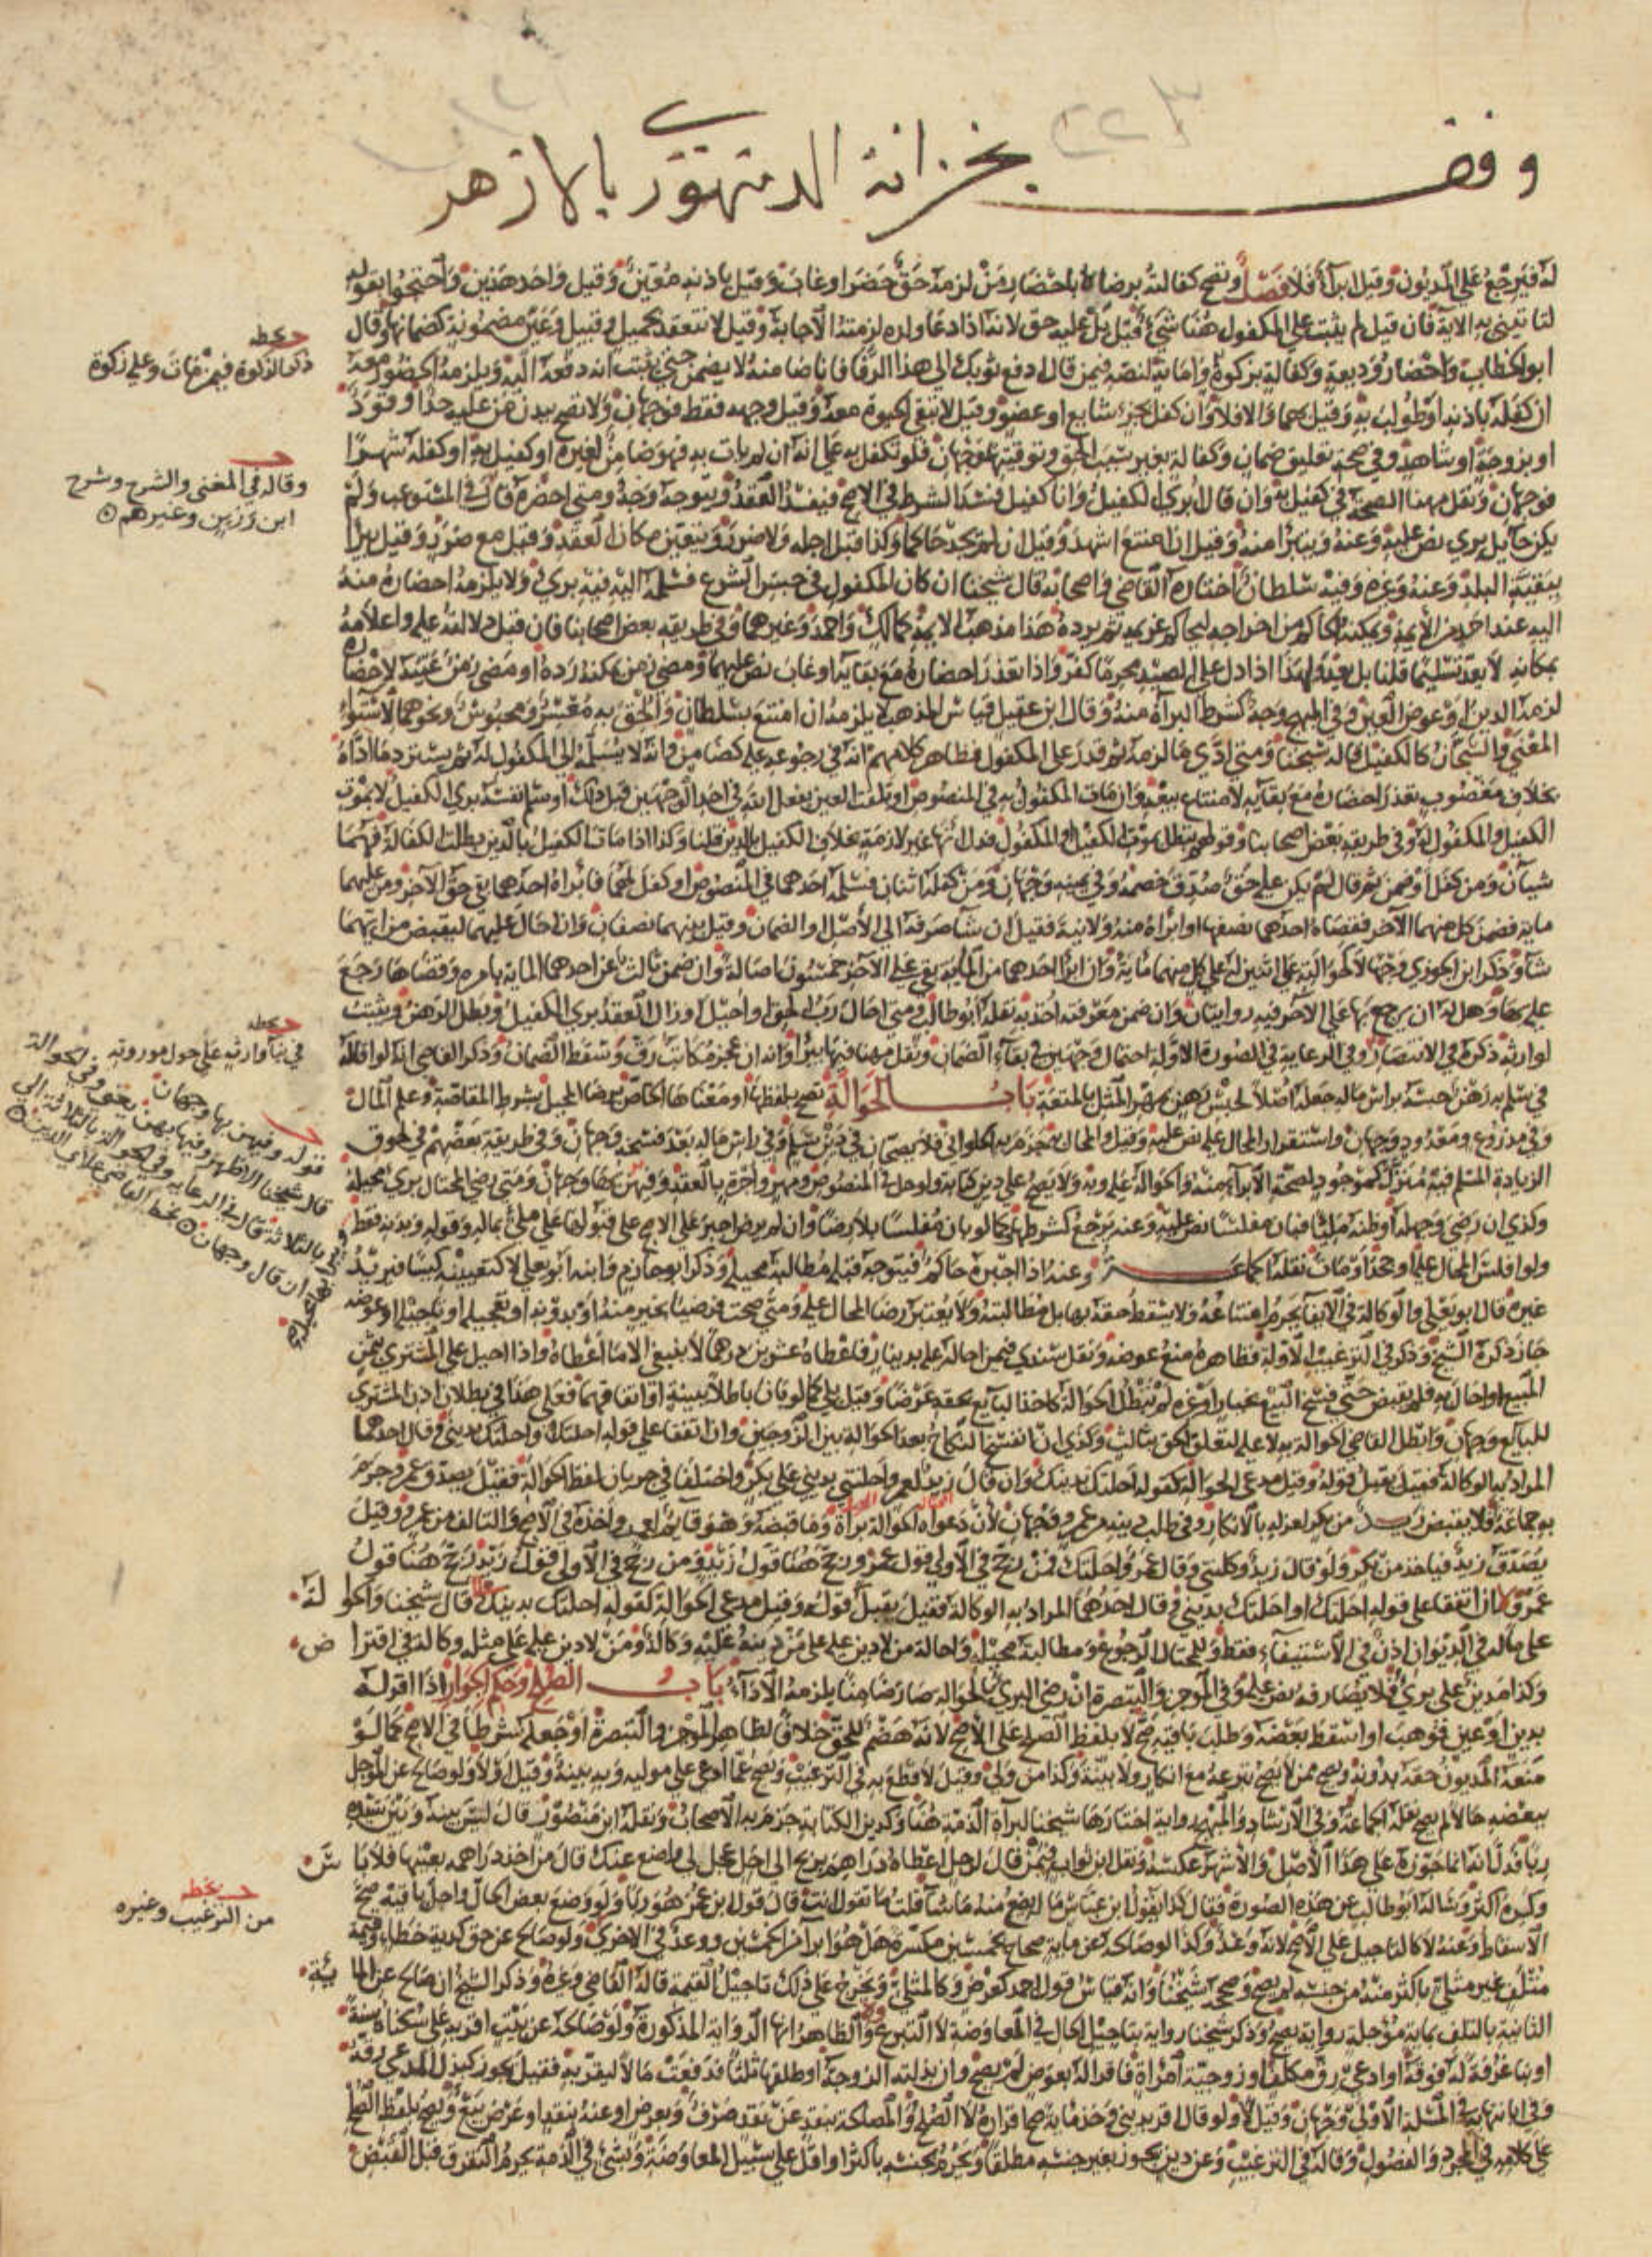 وقف بخزانة الدمنهوري بالازهر
له فيرجع على المديون وقيل ابرأه فلا فصل وتصح كفالته برضاه باحضار من لزمه حق حضر او غاب وقيل باذنه وقيل واحد هذين واحتجوا بقوله
لتأتينني به الاية فان قيل لم يثبت على المكفول هنا شيء قيل بل عليه حق لانه اذا دعاه ولده لزمته الاجابة وقيل لا تنعقد بحميل وقبيل وغير مضمونة كضمانها وقال
ابو الخطاب واحضار وديعة وكفالة بزكوة وامانة لنصه فيمن قال ادفع ثوبك الى هذا الرفا فانا ضامنه لا يضمن حتى يثبت انه دفعه اليه ويلزمه الحضور معه
ان كفله باذنه او طولب به وقيل بهما والا فلا وان كفل بجزء شايع او عضو وقيل لا تبقى الحيوة معه وقيل وجهه فقط فوجهان ولا تصح ببدن من عليه حد او قود
او بزوجة او شاهد وفي صحة تعليق ضمان وكفالة بغير سبب الحق وتوقيتها وجهان فلو تكفل به على انه ان لم يات به فهو ضامن لغيره او كفيل به او كفله شهرا
فوجهان ونقل مهنا الصحة في كفيل به وان قال ابرئ الكفيل وانا كفيل فسد الشرط في الاصح فيفسد العقد ويتوجه وجه ومتى احضره قال في المستوعب ولم
يكن حايل بري نص عليه وعنه ويتبرا منه وقيل ان امتنع اشهد وقيل ان لم يجد حاكما وكذا قبل اجله ولا ضرر ويتعين مكان العقد وقيل مع ضرر وقيل يبرا
ببقية البلد وعنه وغيره وفيه سلطان اختاره القاضي واصحابه قال شيخنا ان كان المكفول في حبس الشرع فسلمه اليه فيه بري ولا يلزمه احضاره منه
اليه عند احد من الايمة ويمكنه الحاكم من اخراجه ليحاكم غريمه ثم يرده هذا مذهب الايمة كمالك واحمد وغيرهما وفي طريقة بعض اصحابنا فان قيل دلالته عليه واعلامه
بمكانه لا يعد تسليما قلنا بل يعد ولهذا اذا دل على الصيد محرما كفر واذا تعذر احضاره مع بقايه او غاب نص عليهما ومضى زمن يمكنه رده او مضى زمن عينه لاحضاره
لزمه الدين او عوض العين وفي المبهج وجه كشرط البرآة منه وقال ابن عقيل قياس المذهب لا يلزمه ان امتنع بسلطان والحق به معسر ومحبوس ونحوهما لاستواء
المعنى والسجان كالكفيل قاله شيخنا ومتى ادى ما لزمه ثم قدر على المكفول فظاهر كلامهم انه في رجوعه عليه كضامن وانه لا يسلمه الى المكفول له ثم يسترد ما اداه
بخلاف مغصوب تعذر احضاره مع بقايه لامتناع بيعه وان مات المكفول به في المنصوص او تلفت العين بفعل الله في احد الوجهين قبل ذلك او سلم نفسه بري الكفيل لا بموت
الكفيل او المكفول له وفي طريقة بعض اصحابنا وقولهم تبطل بموت الكفيل او المكفول فدل انها غير لازمة بخلاف الكفيل بالدين قلنا وكذا اذا مات الكفيل بالدين بطلت الكفالة فهما
شيآن ومن كفل او ضمن ثم قال لم يكن عليه حق صدق خصمه وفي يمينه وجهان ومن كفله اثنان فسلمه احدهما في المنصوص او كفل لهما فابراه احدهما بقي حق الآخر ومن عليهما
ماية فضمن كل منهما الآخر فقضاه احدهما نصفها او ابراه منه ولا نية فقيل ان شا صرفه الى الاصل او الضمان وقيل بينهما نصفان وان احال عليهما ليقبض من ايهما
شا وذكر ابن الجوزي وجها لا كحوالته على اثنين له على كل منهما ماية وان ابرا احدهما من الماية بقي على الاخر خمسون اصالة وان ضمن ثالث عن احدهما الماية بامره وقضاها رجع
عليه بها وهل له ان يرجع بها على الآخر فيه روايتان وان ضمن معرفته اخذ به نقله ابو طالب ومتى احال رب الحق او احيل او زال العقد بري الكفيل وبطل الرهن ويثبت
لوارثه ذكره في الانتصار وفي الرعاية في الصورة الاولة احتمال وجهين في بقآء الضمان ونقل مهنا فيها يبرا وانه ان عجز مكاتب رق وسقط الضمان وذكر القاضي انه لو اقاله
في سلم به رهن حبسه براس ماله جعله اصلا لحبس رهن بمهر المثل بالمتعة باب الحوالة تصح بلفظها او معناها الخاص برضا المحيل بشرط المقاصة وعلم المال
وفي مذروع ومعدود وجهان واستقرار المحال عليه نص عليه وقيل والمحال به جزم به الحلواني فلا يصحان في دين سلم وفي راس ماله بعد فسخه وجهان وفي طريقة بعضهم في لحوق
الزيادة المسلم فيه منزل كموجود لصحة الابرآء منه والحوالة عليه وبه ولا يصح على دين كتابة ولو حل في المنصوص ومهر واجرة بالعقد وفيهن بها وجهان ومتى رضي المحتال بري محيله
وكذا ان رضي وجهله او ظنه مليا فبان مفلسا نص عليه وعنه يرجع كشرطها كما لو بان مفلسا بلا رضا وان لم يرض اجبر على الاصح على قبولها على ملي بماله وقوله وبدنه فقط
ولو افلس المحال عليه او جحد او مات نقله الجماعة وعنه اذا اجبره حاكم فيتوجه قبله مطالبة محيله وذكر ابو حازم وابنه ابو يعلى لا كتعيينه كيسا فيريد
غيره قال ابو يعلى والوكالة في الايفآ يحرم امتناعه ولا يسقط حقه بها بل مطالبته ولا يعتبر رضا المحال عليه ومتى صحت فرضيا بخير منه او بدونه او تعجيله او تاجيله او عوضه
جاز ذكره الشيخ وذكر في الترغيب الاولة فظاهره منع عوضه ونقل سندي فيمن احاله عليه بدينار فاعطاه عشرين درهما لا ينبغي الا ما اعطاه واذا احيل على المشتري بثمن
المبيع او احال به فلم يقبض حتى فسخ البيع بخيار او غيره لم تبطل الحوالة كاخذ البايع بحقه عرضا وقيل بلى كما لو بان باطلا ببينة او اتفاقهما فعلى هذا في بطلان اذن المشتري
للبايع وجهان وابطل القاضي الحوالة به لا عليه لتعلق الحق بثالث وكذا ان انفسخ النكاح بعد الحوالة بين الزوجين وان اتفقا على قوله احلتك واحلتك بديني وقال احدهما
المراد به الوكالة فقيل يقبل قوله وقيل مدعي الحوالة كقوله احلتك بدينك وان قال زيد لعمرو احلتني بديني على بكر واختلفا في جريان لفظ الحوالة فقيل يصدق عمرو جزم
به جماعة فلا يقبض زيد من بكر لعزله بالانكار وفي طلب دينه من عمرو وجهان لان دعواه الحوالة براة وما قبضه وهو قايم لعمرو اخذه في الاصح والتالف من عمرو وقيل
يصدق زيد فياخذ من بكر ولو قال زيد وكلتني وقال عمرو احلتك فمن رجح في الاولى قول عمرو رجح هنا قول زيد ومن رجح في الاولى قول زيد رجح هنا قول
عمرو وان اتفقا على قوله احلتك او احلتك بديني وقال احدهما المراد به الوكالة فقيل يقبل قوله وقيل مدعي الحوالة كقوله احلتك بدينك قال شيخنا والحوالة
على ماله في الديوان اذن في الاستيفآء فقط وللمحتال الرجوع ومطالبة محيله واحالة من لا دين عليه على من دينه عليه وكالة ومن لا دين عليه على مثله وكالة في اقتراض
وكذا مدين على بري فلا يصارفه نص عليه وفي الموجز والتبصرة ان رضي البري بالحوالة صار ضامنا يلزمه الادآء باب الصلح وحكم الجوار اذا اقر له
بدين او عين فوهب او اسقط بعضه وطلب باقيه صح لا بلفظ الصلح على الاصح لانه هضم للحق خلافا لظاهر الموجز والتبصرة او جعله كشرط في الاصح كما لو
منعه المديون حقه بدونه ويصح ممن لا يصح تبرعه مع انكار ولا بينة وكذا من ولي وقيل لا قطع به في الترغيب ويصح عما ادعي على موليه وبه بينة وقيل اولا ولو صالح عن المؤجل
ببعضه حالا لم يصح نقله الجماعة وفي الارشاد والمبهج رواية اختارها شيخنا لبرآة الذمة هنا وكدين الكتابة جزم به الاصحاب ونقله ابن منصور قال ليس بينه وبين سيده
ربا فدل انه انما جوزه على هذا الاصل والاشهر عكسه ونقل ابن ثواب فيمن قال لرجل اعطاه دراهم بربح الى اجل عجل لي واضع عنك قال من اخذ دراهمه بعينها فلا باس
وكبره اكثر وساله ابو طالب عن هذه الصورة فقال كذا يقول ابن عباس ما اضع منه ما شا قلت ما تقول انت قال قول ابن عمر هو ربا ولو وضع بعض الحال واجل باقيه صح
الاسقاط وعنه لا كالتاجيل على الاصح لانه وعد وكذا لو صالحه عن ماية صحاح بخمسين مكسرة هل هو ابرآ من الخمسين ووعد في الاخرى ولو صالح عن حق كدية خطا وقيمة
متلف غير مثلي باكثر منه من جنسه لم يصح وصححه شيخنا وانه قياس قول احمد كعرض وكالمثلي ويخرج على ذلك تاجيل القيمة قاله القاضي وغيره وذكر الشيخ ان صالح عن الماية
الثابتة بالتلف بماية مؤجلة رواية يصح وذكر شيخنا رواية بتاجيل الحال في المعاوضة لا التبرع والظاهر انها الرواية المذكورة ولو صالحه عن بيت اقر به على سكناه سنة
او بنا غرفة له فوقه او ادعى رق مكلف او زوجية امراة فاقرا له بعوض لم يصح وان بذلته الزوجة او طلقها ثلثا فدفعت مالا ليقر به فقيل يجوز كبذل المدعى رقه
وفي ابانتها به في المسئلة الاولى وجهان وقيل لا ولو قال اقر بديني وخذ ماية صح اقراره لا الصلح والمصالحة بنقد عن نقد صرف وبعرض او عنه بنقد او عرض بيع ويصح بلفظ الصلح
على كلامه في المجرد والفصول وقاله في الترغيب وعن دين يجوز بغير جنسه مطلقا ويحرم بجنسه باكثر او اقل على سبيل المعاوضة وبشيء في الذمة يحرم التفرق قبل القبض
بخطه
ذكر الزكوة فيمن مات وعليه زكوة
وقاله في المغني والشرح وشرح
ابن رزين وغيرهم
بخطه
قوله وفيهن بها وجهان
قال شيخنا الاظهر
بخطه
من الترغيب وغيره